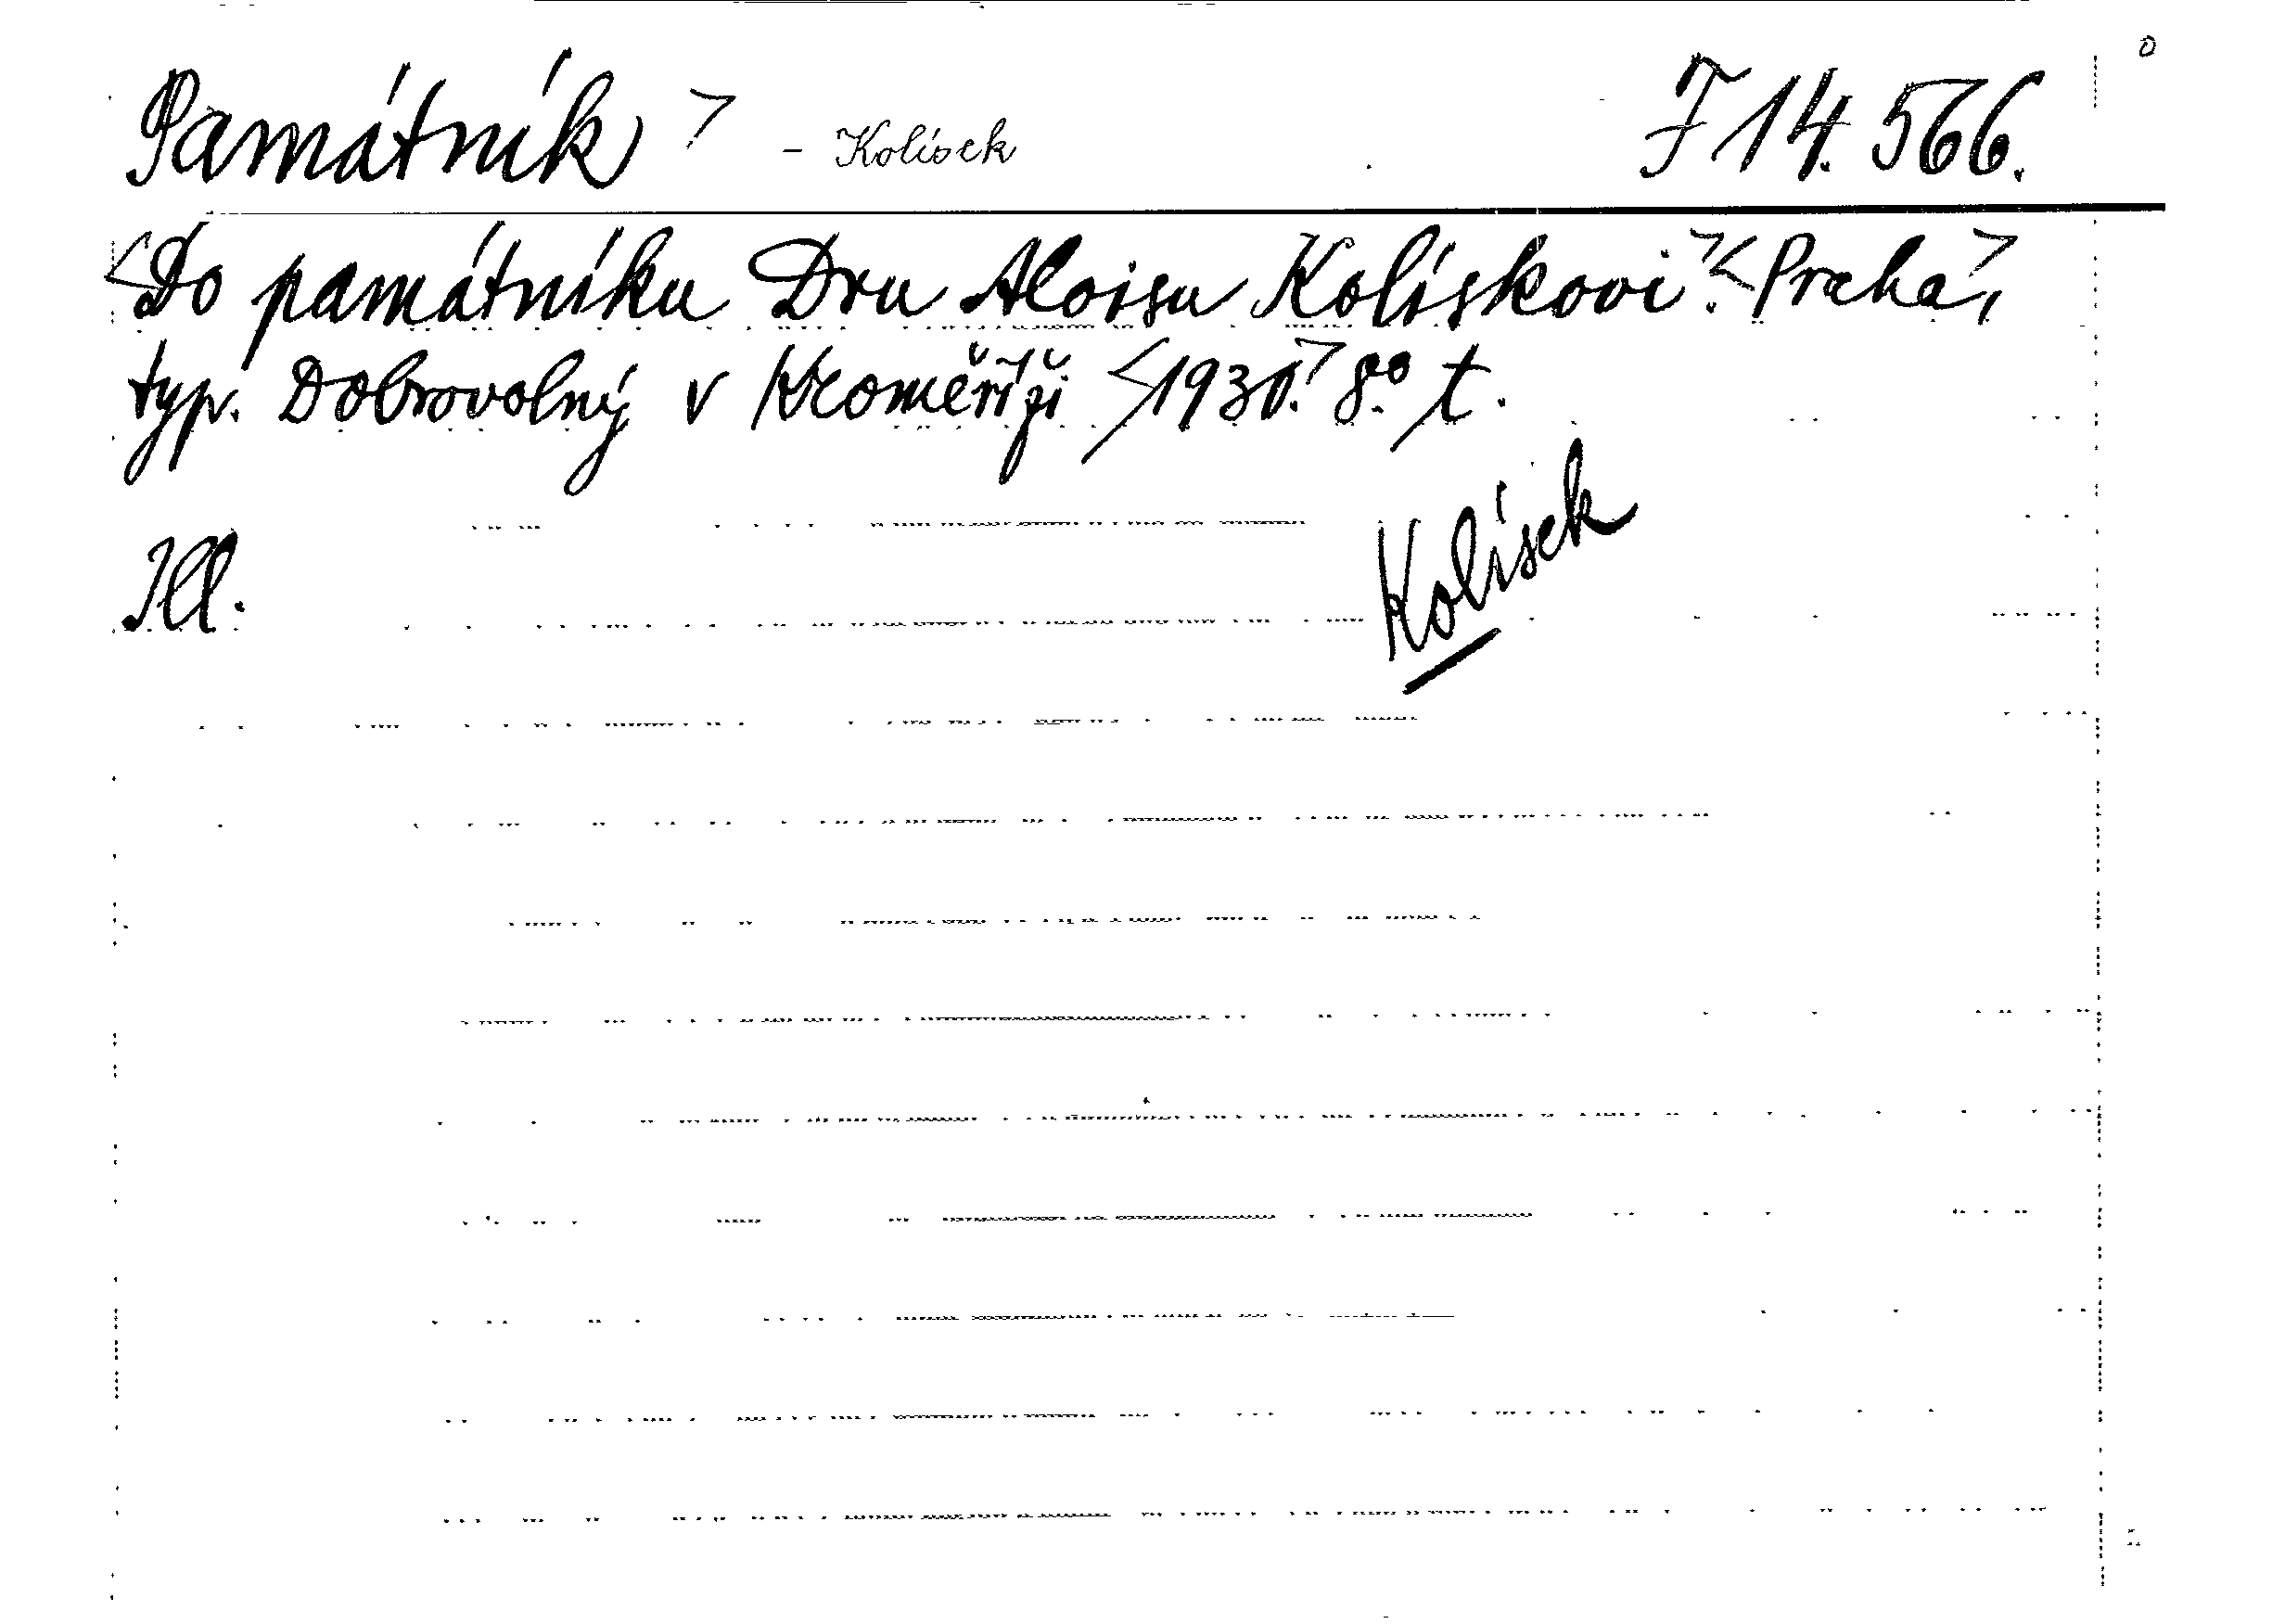 Památník> - Kolísek F 14.566.
<Do památníku Dru Aloisu Kolískovi.> <Praha>,
typ. Dobrovolný v Kroměříži <1930.> 8.° t.
Kolísek
Ill.